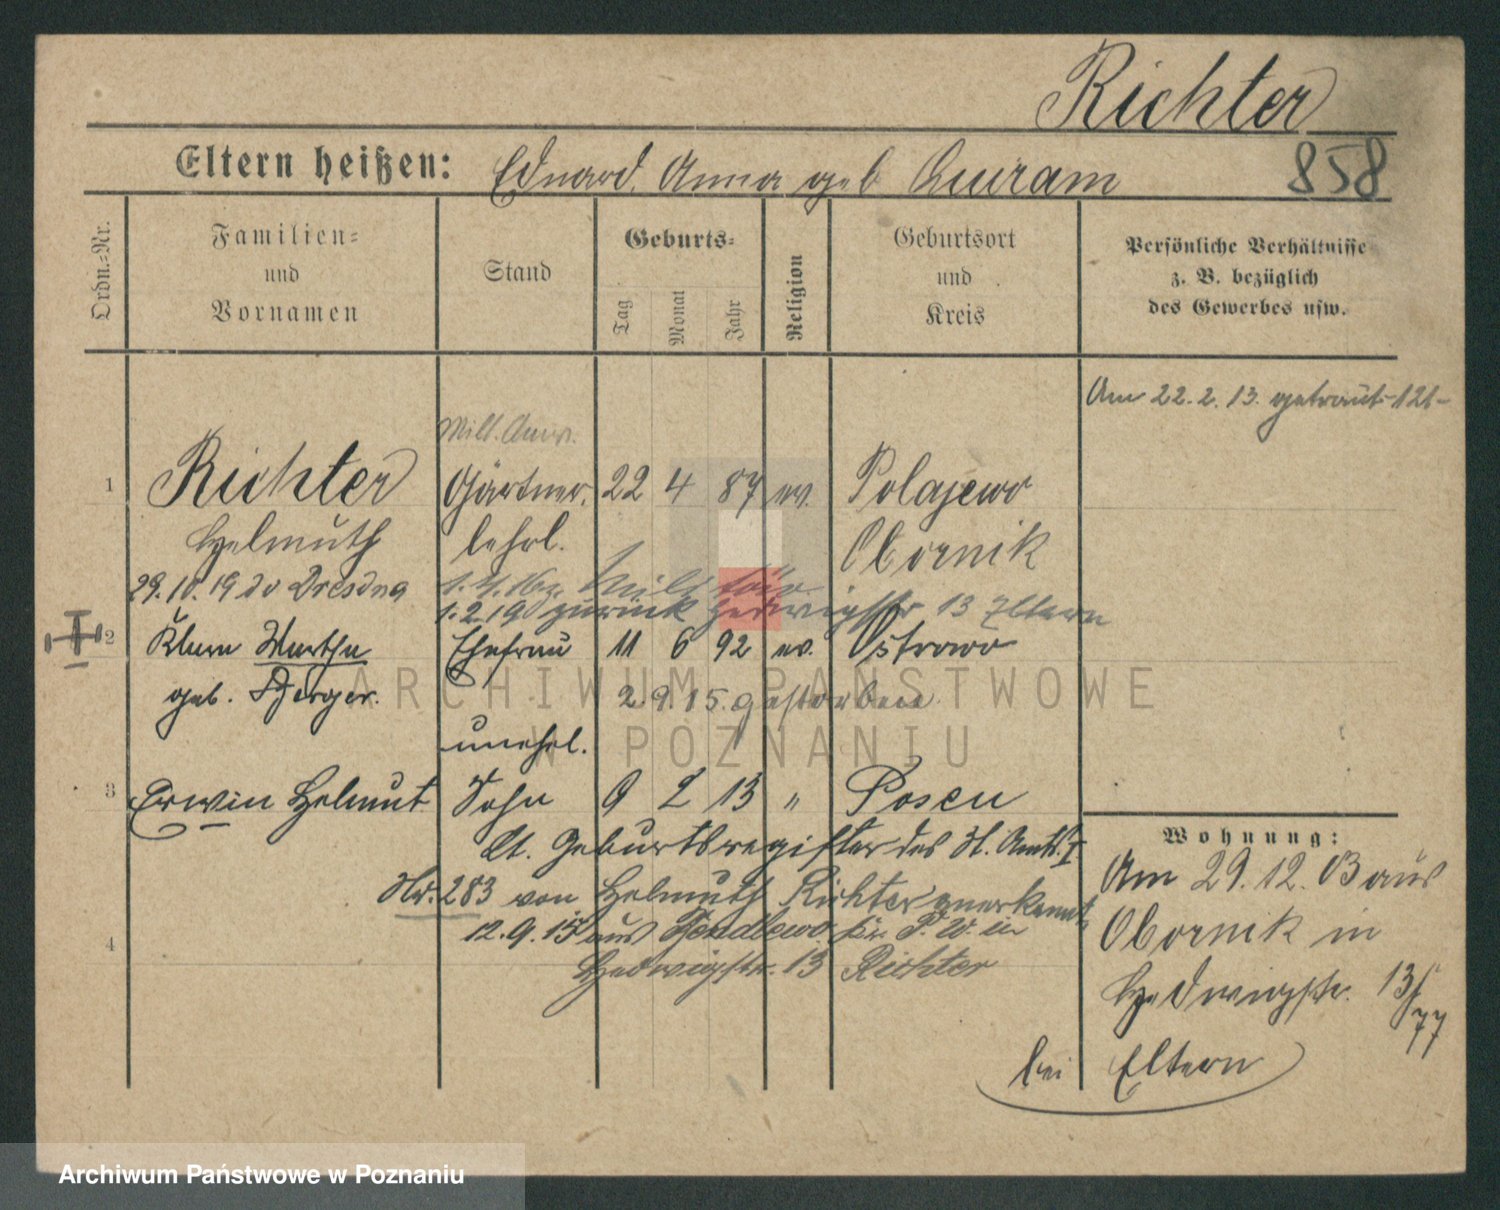 Richter
858
Eltern heißen: Eduard, Anna geb Quiram
Ordn.-Nr.
Familien- und Vornamen
Stand
Geburts-
Tag
Monat
Jahr
Religion
Geburtsort und Kreis
Persönliche Verhältnisse
z. B. bezüglich
des Gewerbes usw.
Am 22. 2. 13. getraut -121-
Milt. Anw.
1 Richter Gärtner. 22 4 87 ev. Polajewo
Helmuth lehrl. Obornik
29. 10. 19 Dresdna
1. 2. 19 zurück Hedwigstr 13 Eltern
2 Martha Ehefrau 11 6 92 ev. Ostrowo
geb. Berger. 2. 9. 15. gestorben
unehl.
3 Erwin Helmut Sohn 9 2 13 " Posen
Lt. Geburtsregister des St. Amts. I
Nr. 283 von Helmuth Richter anerkannt
12. 9. 15 aus in
4
Hedwigstr. 13 Richter
Wohnung:
Am 29. 12. 03 aus
Obornik in
Hedwigstr. 13/
77
bei Eltern
ARCHIWUM PAŃSTWOWE
W POZNANIU
Archiwum Państwowe w Poznaniu